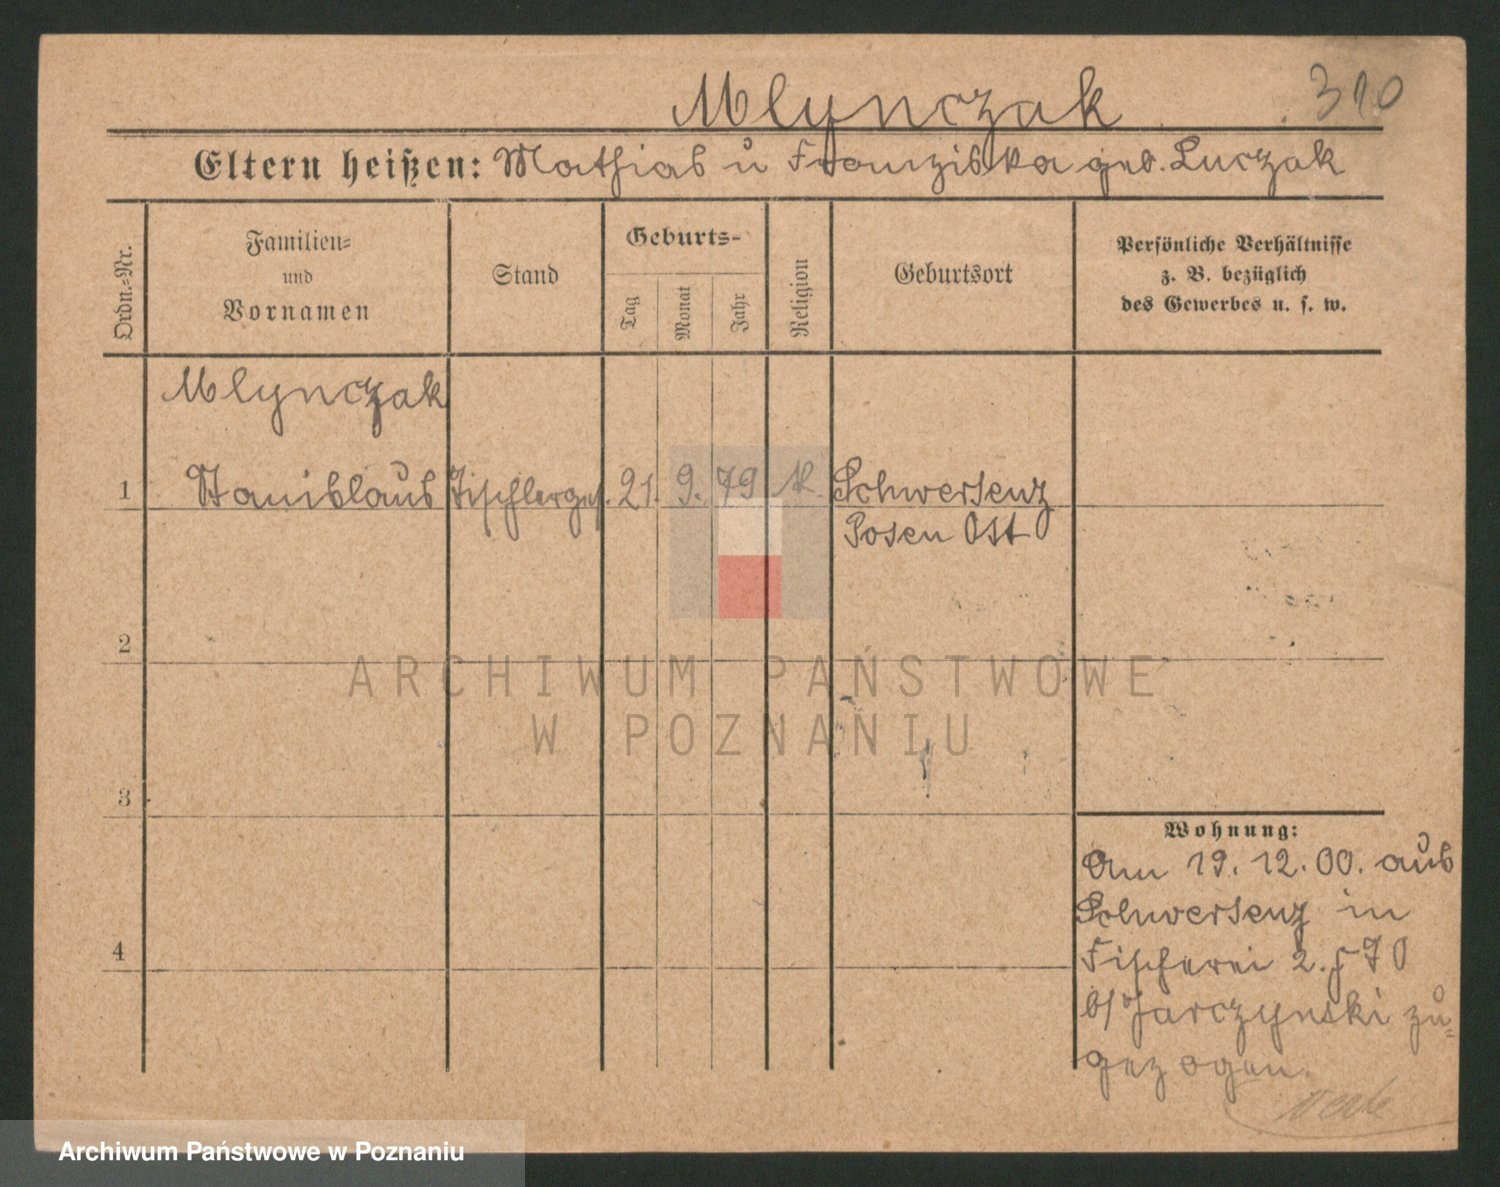 Mlynczak
310
Eltern heißen: Mathias u Franziska geb. Luczak
Ordn.-Nr.
Familien-
und
Vornamen
Stand
Geburts-
Tag
Monat
Jahr
Religion
Geburtsort
Persönliche Verhältnisse
z. B. bezüglich
des Gewerbes u. s. w.
Mlynczak
1 Stanislaus Tischlerges. 21. 9. 79 K. Schwersenz
Posen Ost
2
ARCHIWUM PAŃSTWOWE
W POZNANIU
3
Wohnung:
Am 19. 12. 00. aus
Schwersenz in
4
Fischerei 2.
b/ Jarczynski zu-
gezogen.
Archiwum Państwowe w Poznaniu